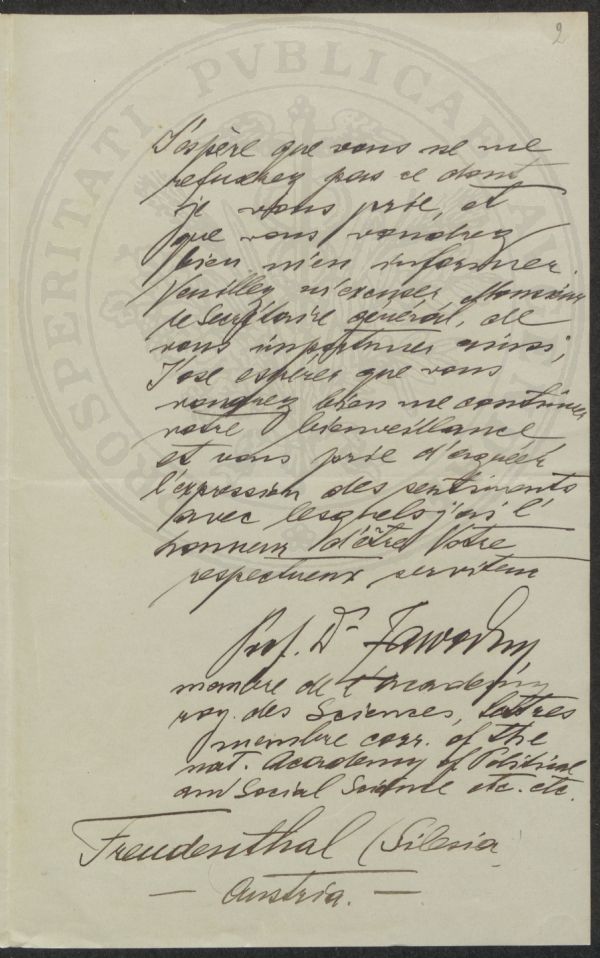 2
J'espère que vous ne me
refuserez pas ce dont
je vous prie, et
que vous voudrez
bien m'en informer.
Veuillez m'excuser, Monsieur
le Secrétaire general, de
vous importuner ainsi;
J'ose espérer que vous
voudrez bien me continuer
votre bienveillance
et vous prie d'agréer
l'expression des sentiments
avec lesquels j'ai l'
honneur d'être Votre
respectueux serviteur
Prof. Dr
membre de l'academy
roy. des Sciences, lettres
membre corr. of the
nat. Academy of Political
and Social Science etc. etc.
Freudenthal (Silesia
— Austria. —
PROSPERITATI PVBLICAE